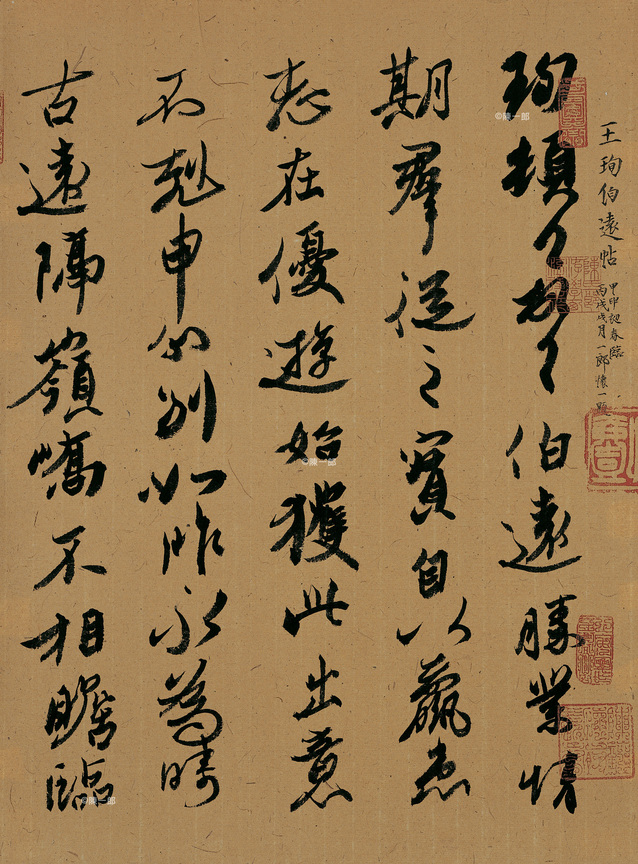 王珣伯遠帖
甲申初春臨
珣頓首頓首伯遠勝業情
期羣從之寶自以羸患
志在優遊始獲此出意
不剋申分別如昨永為疇
古遠隔嶺嶠不相瞻臨
©陳一郎
©陳一郎
©陳一郎